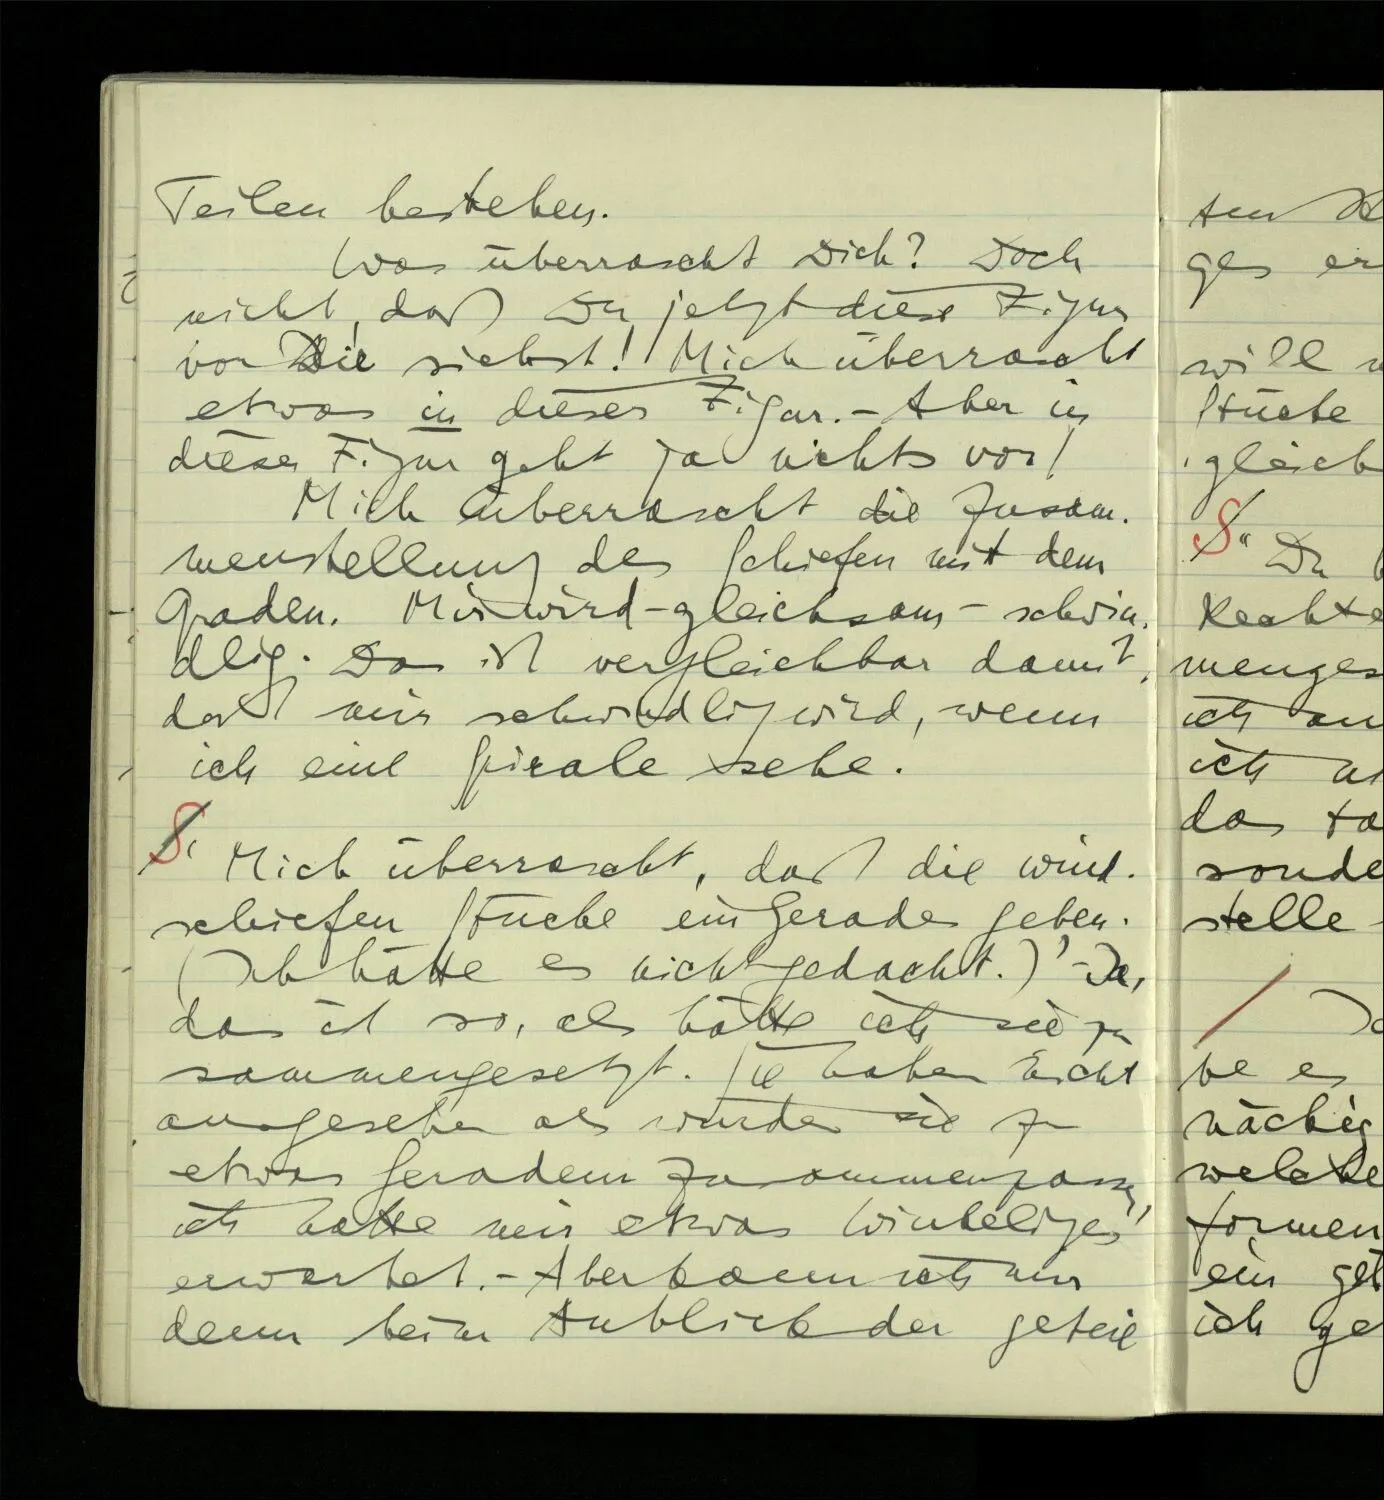 Teilen bestehen.
Was überrascht Dich? Doch
nicht, daß Du jetzt diese Figur
vor Dir siehst! Mich überrascht
etwas in dieser Figur. – Aber in
dieser Figur geht ja nichts vor!
Mich überrascht die Zusam-
menstellung des Schiefen mit dem
Graden. Mir wird – gleichsam – schwin-
dlig. Das ist vergleichbar damit,
daß mir schwindlig wird, wenn
ich eine Spirale sehe.
S,
Mich überrascht, daß die wind-
schiefen Stücke ein Gerades geben.
(Ich hätte es nicht gedacht.)' – Ja,
das ist so, als hätte ich sie zu
sammengesetzt. Sie haben nicht
ausgesehen als würden sie zu
etwas Geradem zusammenpassen,
ich hatte mir etwas Winkeliges'
erwartet. – Aber kann ich mir
denn beim Anblick der geteil
ten
ges er
will
Stücke
gleich
S" Du
Rechte
menges
ich
ich
das
sonde
stelle –
/
be es
nächig
welche
formen
ein
ich ge